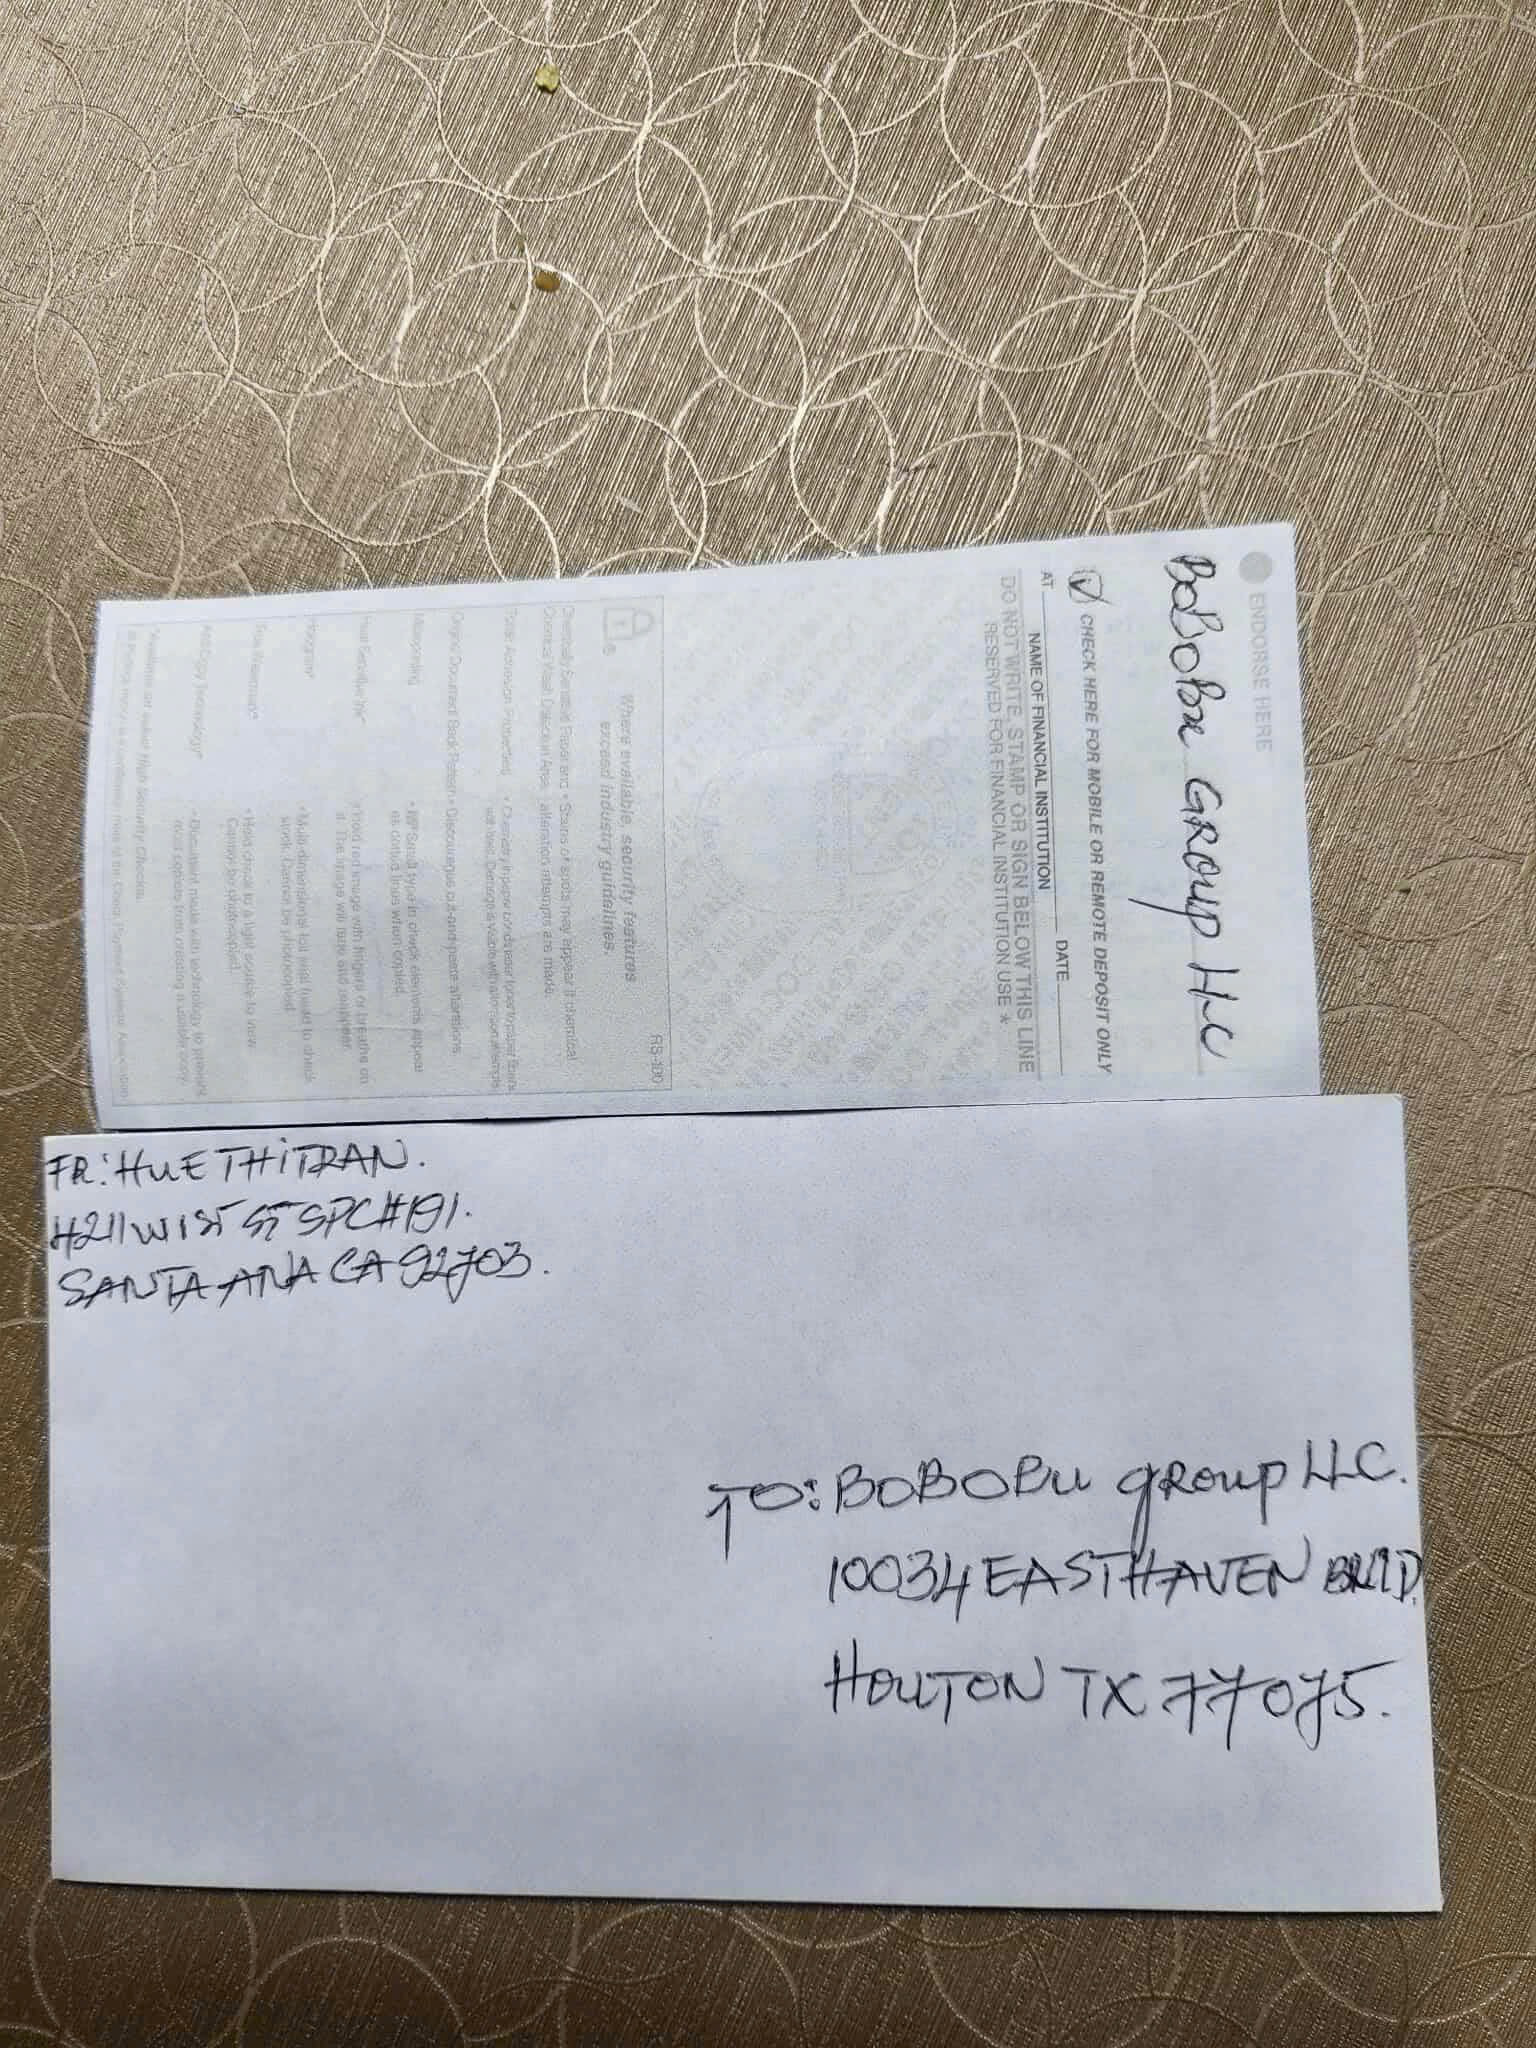 ENDORSE HERE
BoBoBu GROUP LLC
CHECK HERE FOR MOBILE OR REMOTE DEPOSIT ONLY
AT
NAME OF FINANCIAL INSTITUTION
DATE
DO NOT WRITE, STAMP OR SIGN BELOW THIS LINE
RESERVED FOR FINANCIAL INSTITUTION USE *
RS-100
Where available, security features
exceed industry guidelines.
Chemically Sensitive Paper and • Stains or spots may appear if chemical
alteration attempts are made.
Toner Adhesion Properties
Original Document Back Pattern • Discourages cut-and-paste alterations.
Microprinting • MP Small type in check elements appear
as dotted lines when copied.
Heat Sensitive Ink* • Hold red image with fingers or breathe on
it. The image will fade and reappear.
Hologram* • Multi-dimensional foil
stock. Cannot be photocopied.
True Watermark* • Hold check to a light source to view.
Cannot be photocopied.
Anti Copy Technology* • Document made with technology to prevent
most copiers from creating a usable copy.
*Available on select High Security Checks.
FR: HUE THI TRAN.
4211 W 1ST ST SPC #191.
SANTA ANA CA 92703.
TO: BOBOBU GROUP LLC.
10034 EASTHAVEN BLVD.
HOUTON TX 77075.